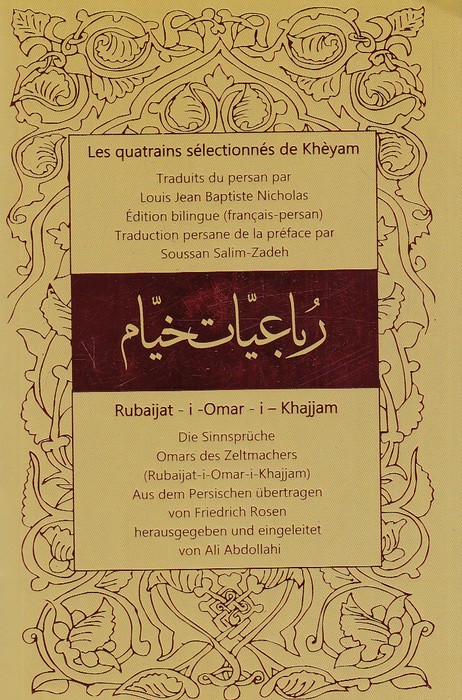 Les quatrains sélectionnés de Khèyam
Traduits du persan par
Louis Jean Baptiste Nicholas
Édition bilingue (français-persan)
Traduction persane de la préface par
Soussan Salim-Zadeh
رُباعیّات خیّام
Rubaijat - i -Omar - i – Khajjam
Die Sinnsprüche
Omars des Zeltmachers
(Rubaijat-i-Omar-i-Khajjam)
Aus dem Persischen übertragen
von Friedrich Rosen
herausgegeben und eingeleitet
von Ali Abdollahi